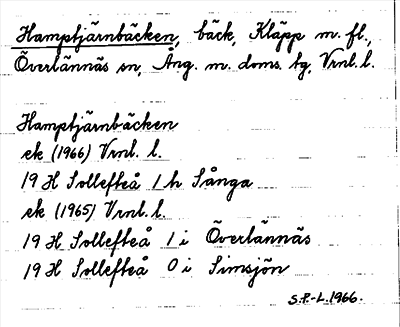 Hamptjärnbäcken, bäck, Kläpp m. fl.,
Överlännäs sn, Ång. m. doms. tg, Vrnl. l.
Hamptjärnbäcken
ek (1966) Vrnl. l.
19 H Sollefteå 1 h Sånga
ek (1965) Vrnl. l.
19 H Sollefteå 1 i Överlännäs
19 H Sollefteå 0 i Simsjön
S.P.-L. 1966.